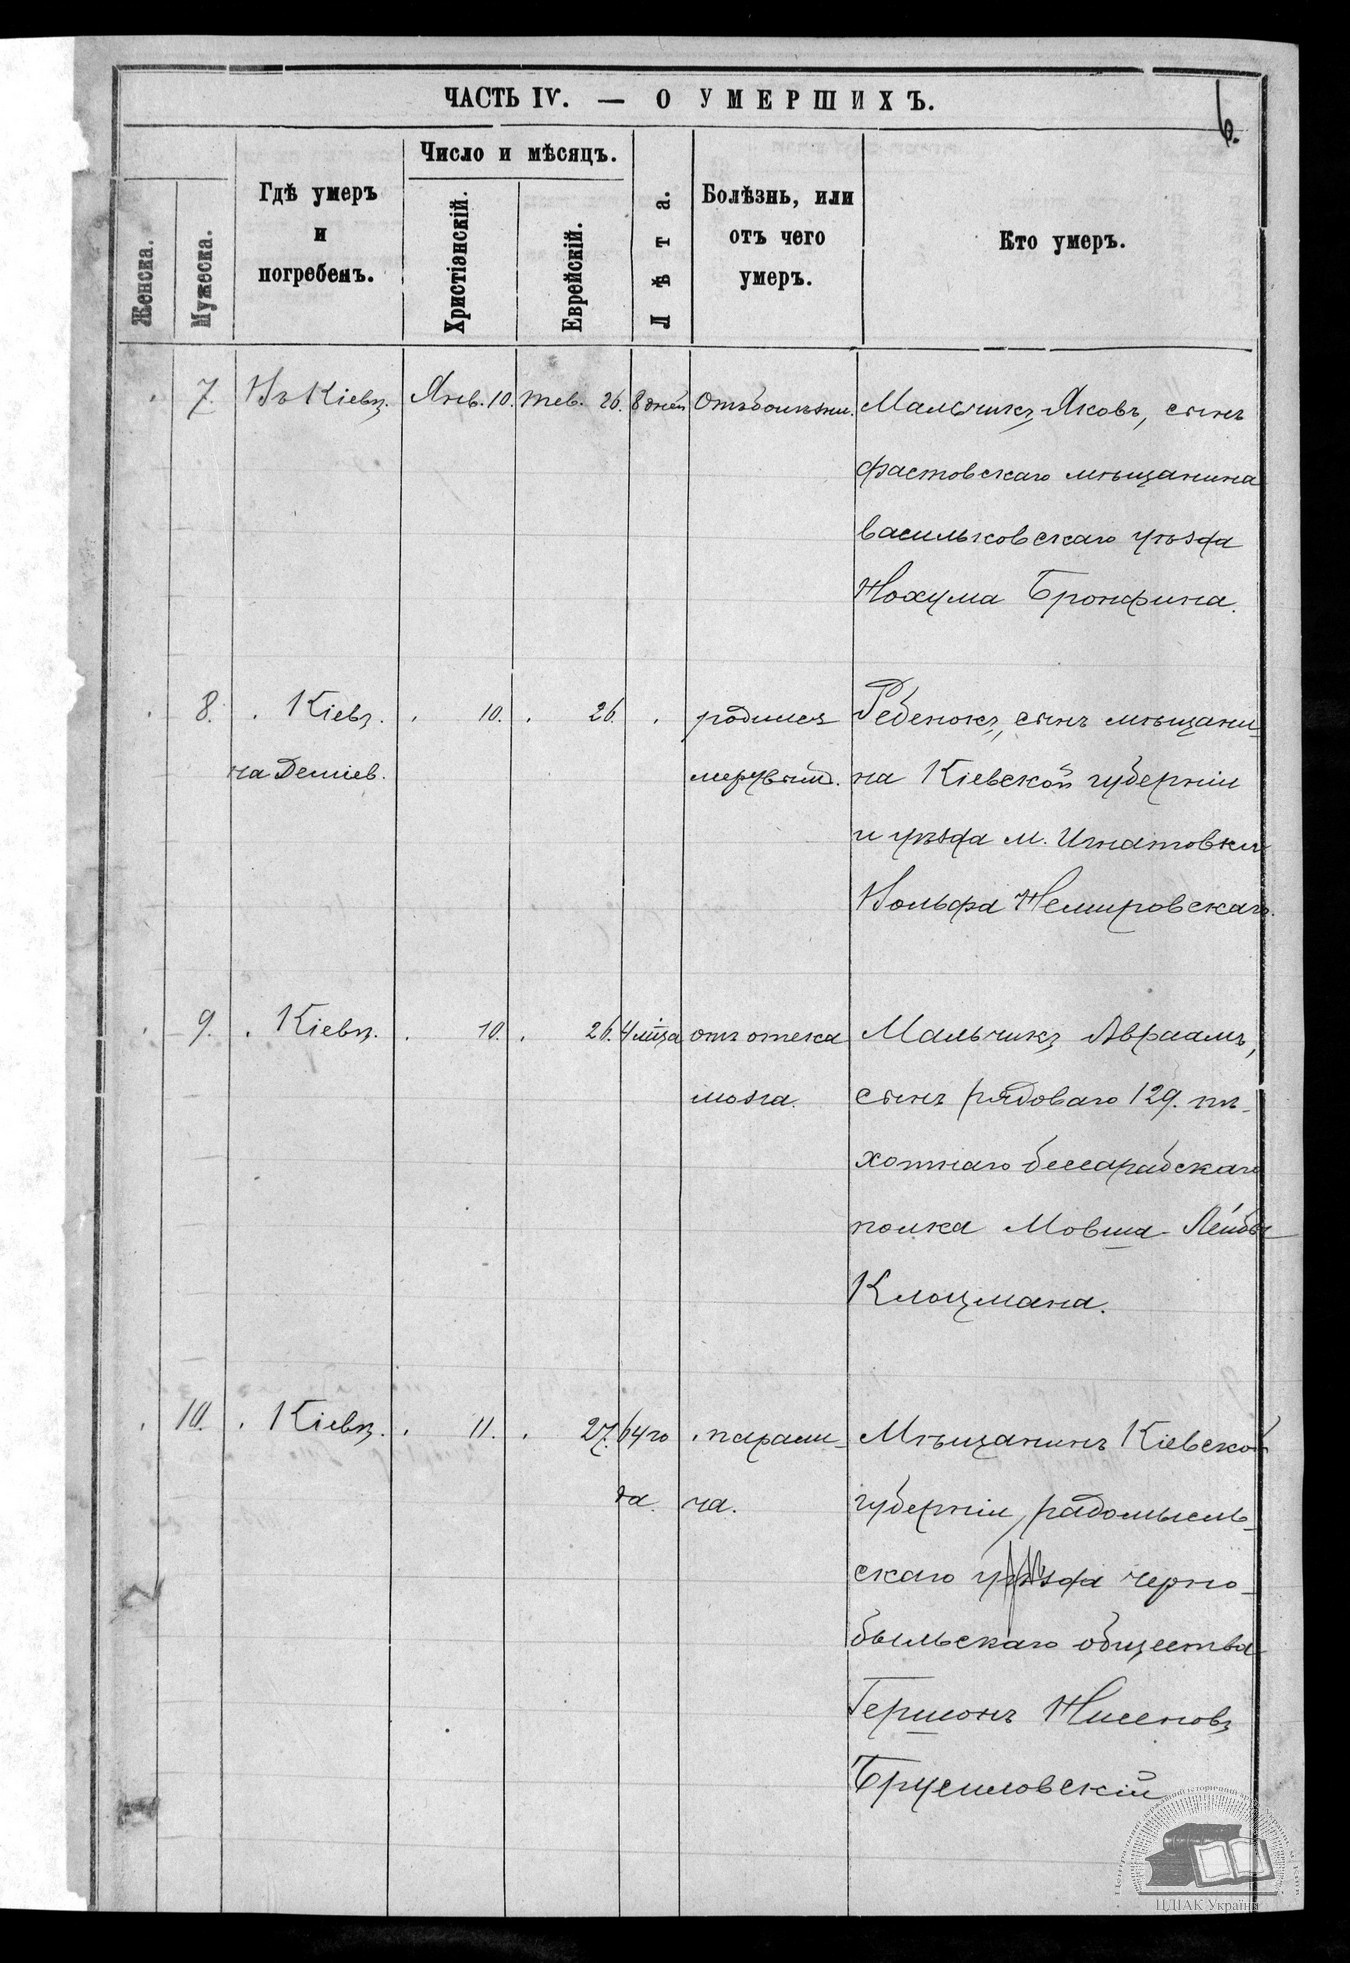 ЧАСТЬ IV. — О УМЕРШИХЪ.
6.
Женска.
Мужеска.
Гдѣ умеръ
и
погребенъ.
Число и мѣсяцъ.
Христіанскій.
Еврейскій.
Лѣта.
Болѣзнь, или
отъ чего
умеръ.
Кто умеръ.
7. Въ Кіевѣ. Янв. 10. тев. 26. 8 дней Отъ болѣзни. Мальчикъ Яковъ, сынъ
фастовскаго мѣщанина
васильковскаго уѣзда
Нохума Бронфина.
8. Кіевѣ. 10. 26. родился Ребенокъ, сынъ мѣщани-
на Деміев. мертвый. на Кіевской губерніи
и уѣзда м. Игнатовки
Вольфа Немировскаго.
9. Кіевѣ. 10. 26. 4 мѣсца отъ отека Мальчикъ Авраамъ,
мозга. сынъ рядоваго 129. пѣ-
хотнаго бессарабскаго
полка Мовша-Лейбы
Клоцмана.
10. Кіевѣ. 11. 27. 64 го паралич- Мѣщанинъ Кіевской
да. ча. губерніи, радомысль-
скаго уѣзда черно-
быльскаго общества
Гершонъ Нисеновъ
Брусиловскій
ЦДІАК України